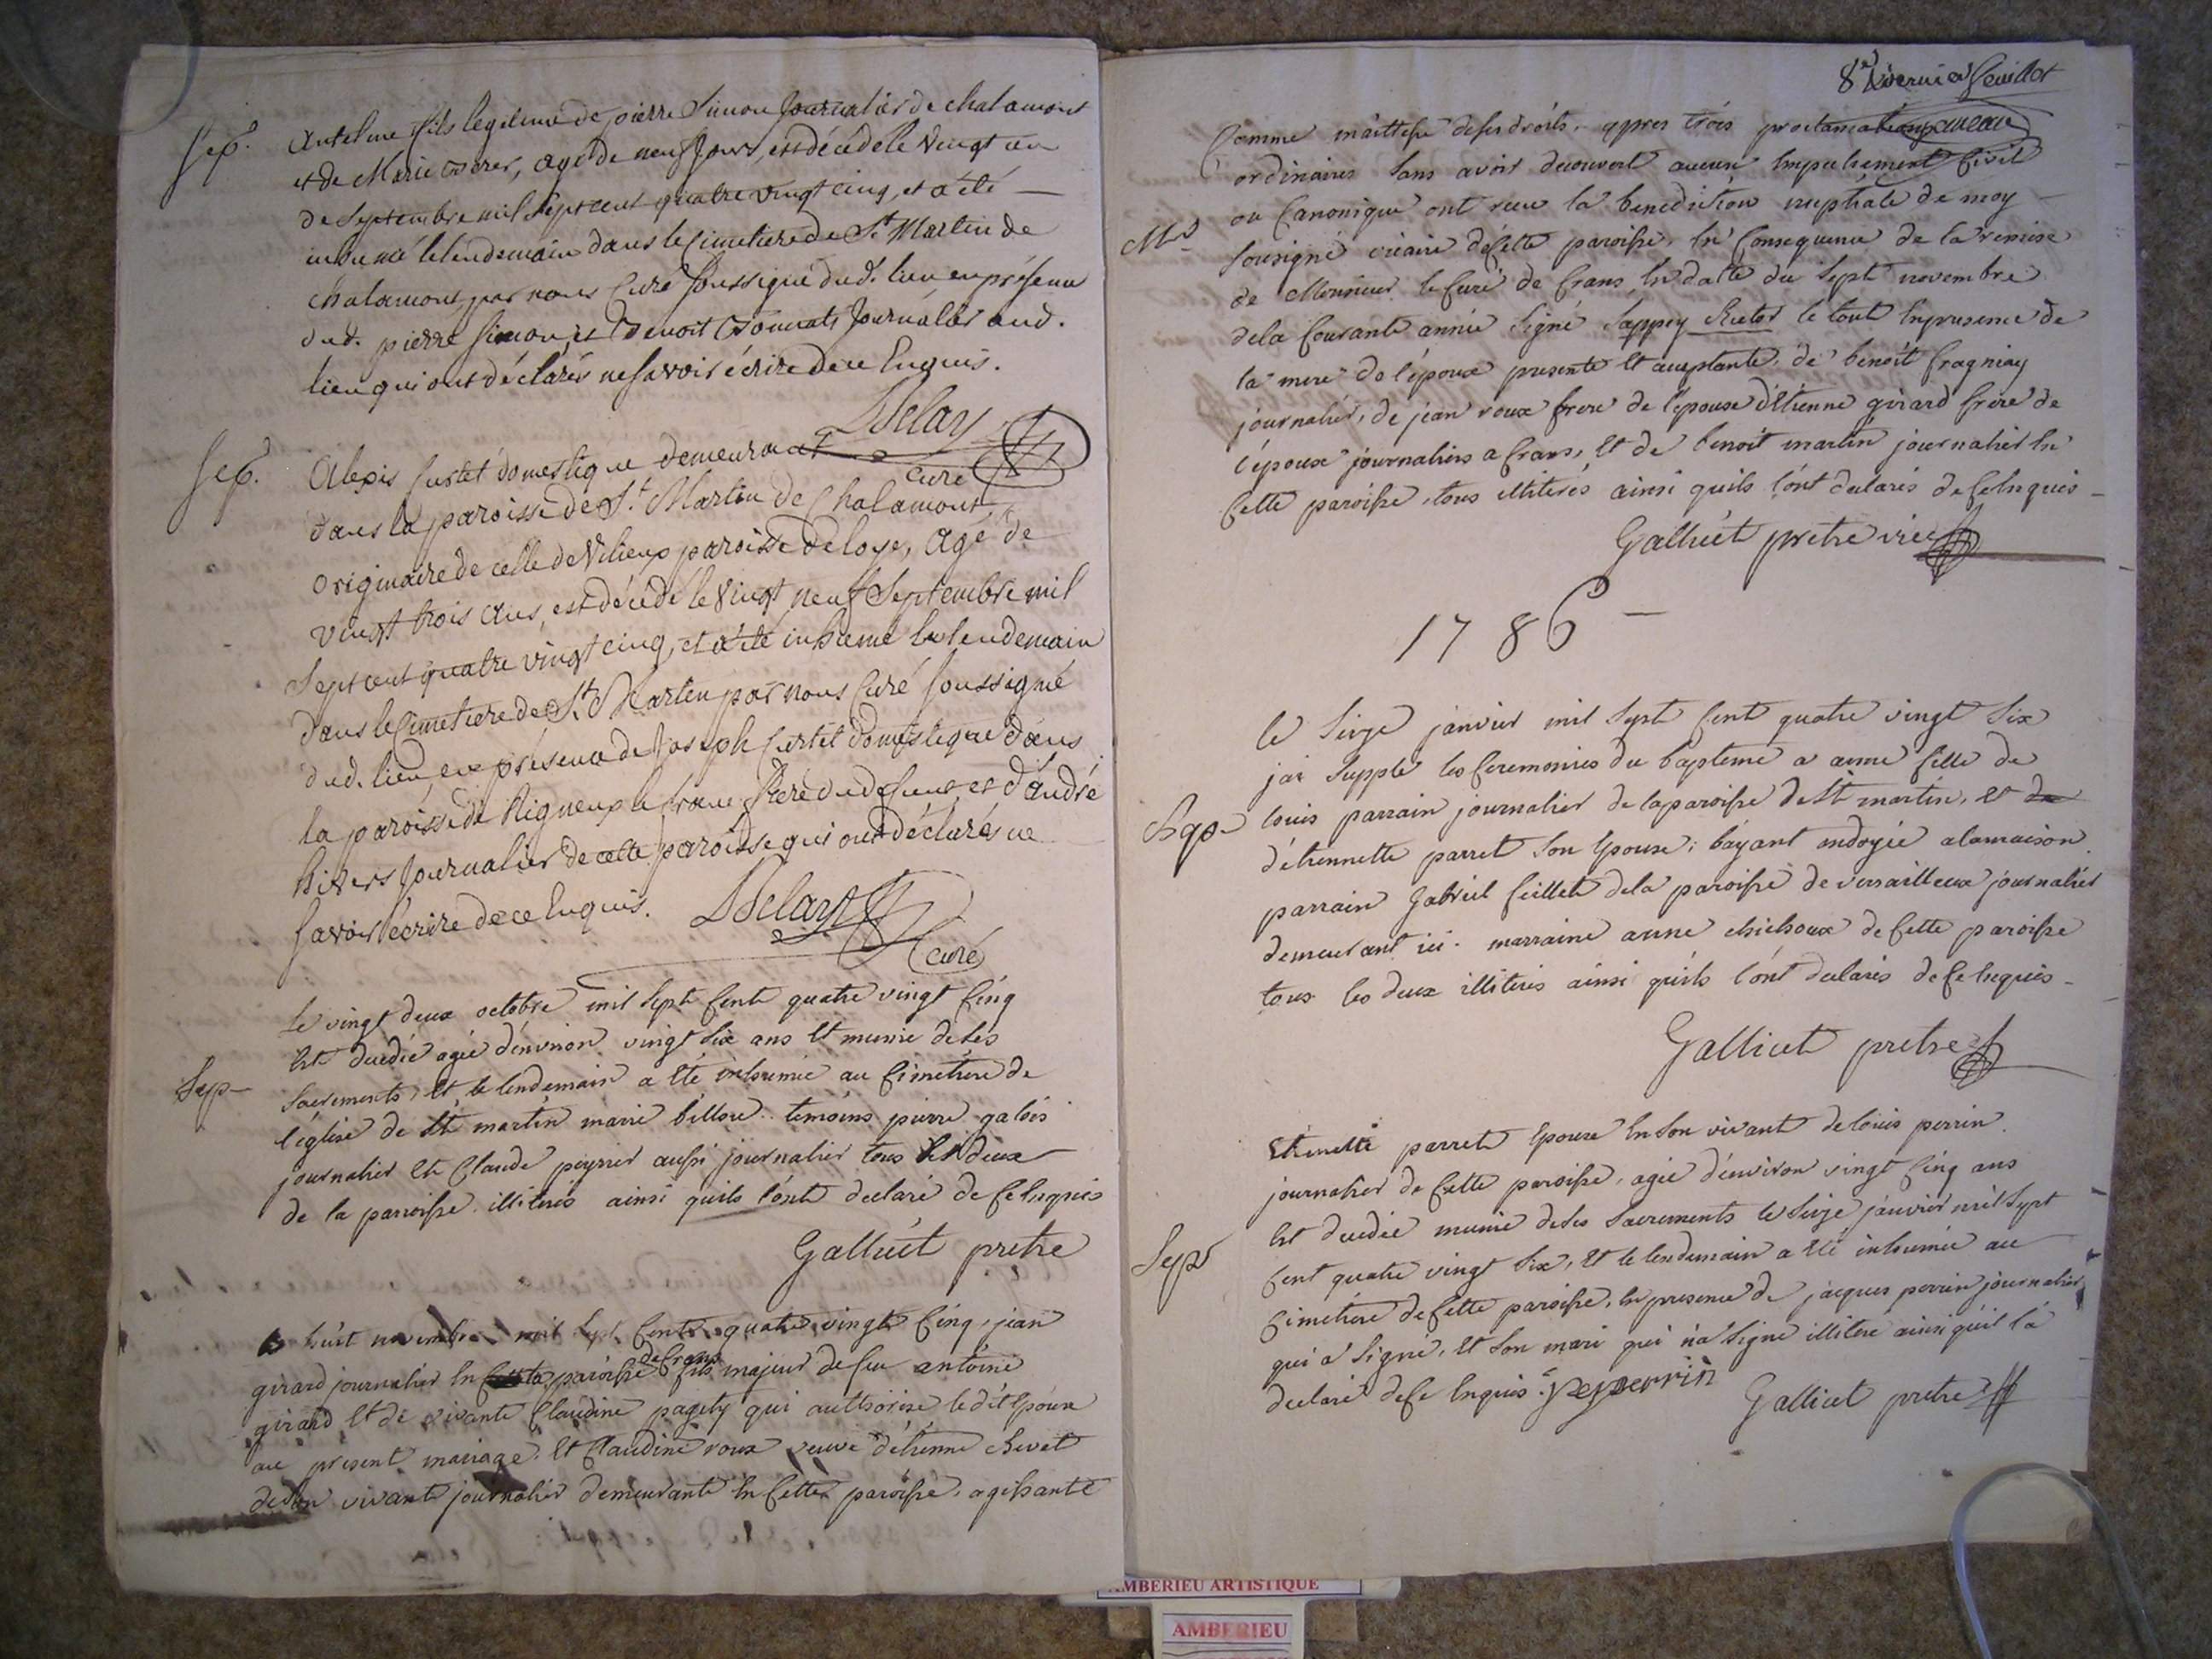 Sep.
Antelme fils légitime de pierre Simon Journalier de chalamont
et de Marie agé de neuf Jours, est décédé le vingt un
de Septembre mil Sept cent quatre vingt cinq, et a été
inhumé le lendemain dans le Cimetiere de St. Martin de
chalamont, par nous Curé soussigné dud. lieu en présence
dud. pierre Simon, et Benoit Journalier aud.
lieu qui ont déclarés ne savoir écrire de ce Enquis.
Delay
curé
Sep.
Alexis Curtet domestique demeurant
dans la paroisse de St. Martin de Chalamont,
originaire de celle de Vilieux paroisse de loye, agé de
vingt trois ans, est décédé le vingt neuf Septembre mil
Sept cent quatre vingt cinq, et a été inhumé le lendemain
dans le Cimetiere de St. Martin par nous Curé soussigné
dud. lieu en présence de Joseph Curtet domestique dans
la paroisse de Rigneux le franc frere dud. defunt et d'andré
hivers Journalier de cette paroisse qui ont déclarés ne
savoir écrire de ce Enquis. Delay
curé
Sep
Le vingt deux octobre mil Sept Cent quatre vingt Cinq
Est decedée agée d'environ vingt six ans Et munie de ses
sacrements, Et le lendemain a Eté inhumée au Cimetiere de
l'église de St martin marie billoux. temoins pierre galois
journalier Et Claude peysier aussi journalier tous les deux
de la parroisse. illiterés ainsi quils l'ont declaré de ce Enquis
Galliet pretre
Le huit novembre mil Sept Cent quatre vingt Cinq, jean
girard journalier En paroisse de Crans fils majeur de feu antoine
girard Et de vivante Claudine pagety qui authorise le dit Epoux
au present mariage. Et Claudine roux veuve d'étienne chevat
de son vivant journalier demeurante En Cette paroisse, agissante
8e dernier feuillet
Comme maitresse de ses droits, apres trois proclamations
ordinaires Sans avoir decouvert aucun Empechement Civil
ou Canonique ont recu la benediction nuptiale de moy
Msousigné vicaire de Cette paroisse, En Consequence de la remise
de Monsieur le Curé de Crans En datte du Sept novembre
de la Courante année Signé Sappey Rector le tout Enpresence de
la mere de l'époux presente Et acceptante, de benoit fragniay
journalier, de jean roux frere de l'épouse d'Etienne girard frere de
l'époux journaliers a Crans, Et de benoit martin journalier En
Cette paroisse, tous illiterés ainsi quils l'ont declarés de Ce Enquis
Galliet pretre vic
1786
le Seize janvier mil Sept Cent quatre vingt Six
jai Supplé les Ceremonies du baptême a anne fille de
louis parrain journalier de la paroisse de St martin, et de
d'étiennette parret Son Epouse; l'ayant ondoyée a la maison
parrain Gabriel feillet de la paroisse de versailleux journalier
demeurant ici. marraine anne chichoux de Cette paroisse
tous les deux illiterés ainsi quils l'ont declarés de Ce Enquis
Galliet pretre
Sep
Etiennette parret Epouse En Son vivant de louis perrin
journalier de Cette paroisse, agée d'environ vingt Cinq ans
Est decedée munie de Ses Sacrements le Seize janvier mil Sept
Cent quatre vingt Six, Et le lendemain a Eté inhumée au
Cimetiere de Cette paroisse, En presence de jacques perrin journalier
qui a Signé, Et Son mari qui n'a Signé illiteré ainsi qu'il l'a
declaré de Ce Enquis. perrin Galliet pretre
AMBERIEU ARTISTIQUE
AMBERIEU